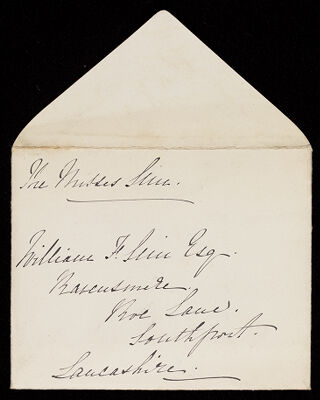 The Misses Sim.
William F. Sim Esq.
Ravensmere.
Roe Lane.
Southport.
Lancashire.